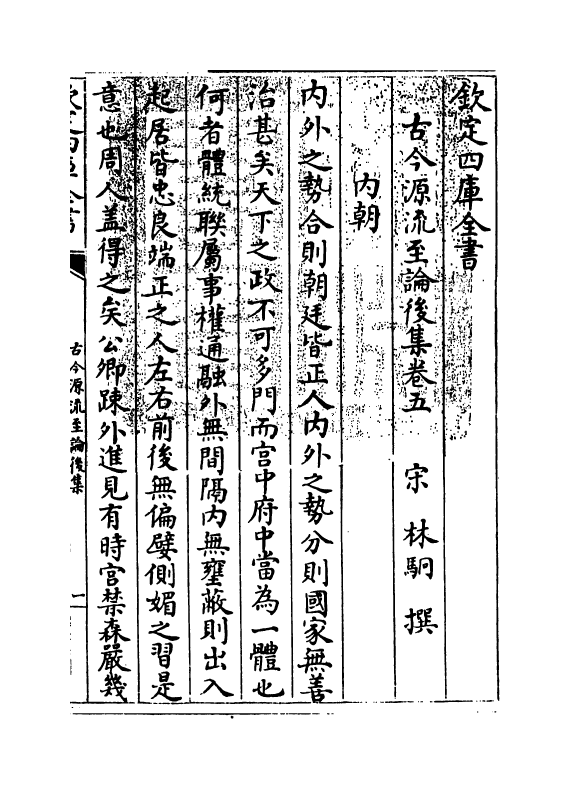 欽定四庫全書
古今源流至論後集卷五　宋　林駉　撰
內朝
內外之勢合則朝廷皆正人內外之勢分則國家無善
治甚矣天下之政不可多門而宫中府中當為一體也
何者體統聯屬事權通融外無間隔內無壅蔽則出入
起居皆忠良端正之人左右前後無偏嬖側媚之習是
意也周人盖得之矣公卿踈外進見有時宫禁森嚴幾
欽定四庫全書
古今源流至論後集
一